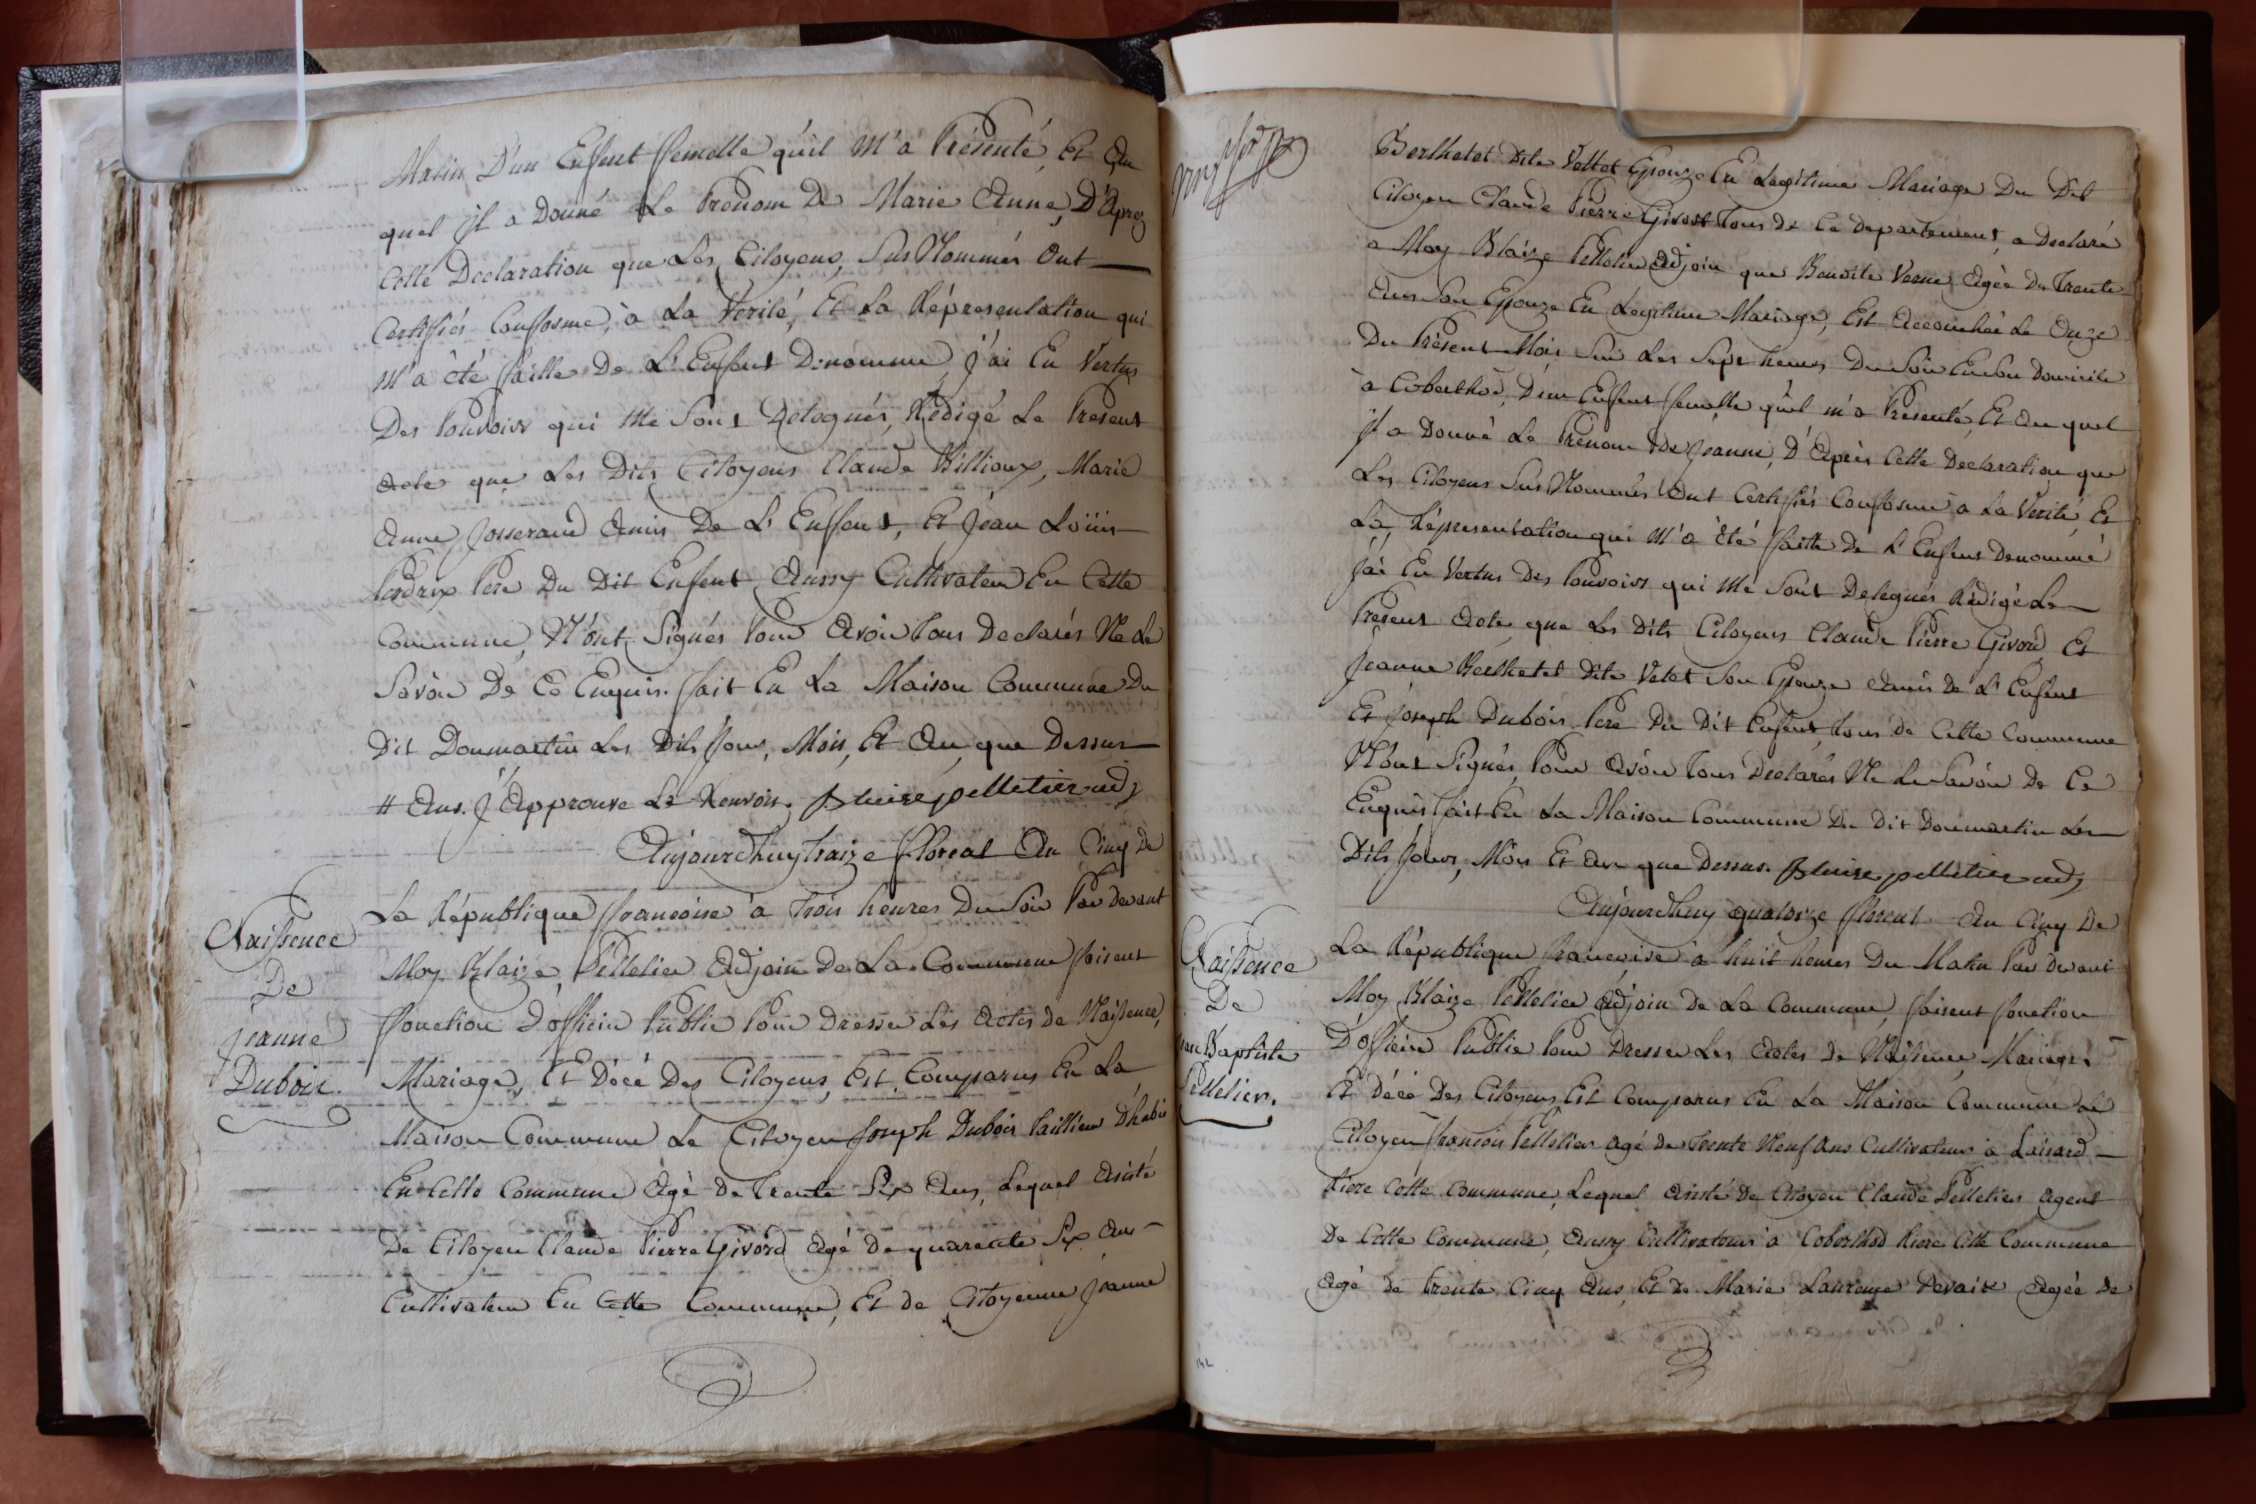 Matin D'un Enffent ffemelle qu'il M'a Présenté, Et Au
quel jl a Donné Le Prénom De Marie Anne, D'Aprez
Cette Declaration que Les Citoyens, Sus Nommés Ont
Certiffiés Conffosme, à La Verité, Et La Répresentation qui
M'a été ffaitte De L'Enffent Denommé, j'ai En Vertus
Des Pouvoirs qui Me Sont Delegués, Rédigé Le Present
Acte que Les Dits Citoyens Claude Billioux, Marie
Anne Josserand Amis De L'Enffent, Et Jean Loüis
Perdrix Pere Du Dit Enffent, Aussy Cultivateur En Cette
Commune, N'ont Signés Pour Avoir Tous Declarés Ne Le
Savoir De Ce Enquis. ffait En La Maison Commune Du
Dit Dommartin Les Dits Jour, Mois, Et An, que Dessus
# Ans. J'Approuve Le Renvoir. Blaise pelletier adj
Aujourdhuy traize ffloreal An Cinq De
La République ffrancoise à Trois heures Du Soir Par Devant
Naissence
Moy Blaize, Pelletier Adjoin De La Commune ffaisent
De
ffonction D'officier Public Pour Dresser Les Actes de Naissence,
jeanne
Mariage, Et Décé Des Citoyens, Est Comparus En La
Dubois.
Maison Commune Le Citoyen Joseph Dubois taillieur D'habis
En Cette Commune Agé De Trente Six Ans, Lequel Asisté
De Citoyen Claude Pierre Givord Agé De quarente Six Ans
Cultivateur En Cette Commune, Et de Citoyenne Jeanne
Berthetet Dite Vettet Epouze En Legitime Mariage Du Dit
Citoyen Claude Pierre Givord Tous De Ce Departement, a Declaré
a Moy Blaize Pelletier Adjoin que Benoite Verne Agée De Trente
Ans Son Epouze En Legitime Mariage, Est Accouchée Le Onze
Du Présent Mois Sur Les Sept heures Du Soir En Son Domicile
a Coberthod, D'un Enffent ffemelle qu'il m'a Presenté, Et Au quel
jl a Donné Le Prénom De Jeanne, D'Après Cette Declaration que
Les Citoyens Sus Nommés Ont Certiffiés Conffosme a La Verité, Et
La Répresentation qui M'a été ffaitte De L'Enffent Denommé
J'ai En Vertus Des Pouvoirs qui Me Sont Delegués Rédigé Le
Present Acte que Les Dits Citoyens Claude Pierre Givord Et
Jeanne Berthetet Dite Vetet Son Epouze Amis De L'Enffent
Et Joseph Dubois Pere Du Dit Enffent Tous De Cette Commune
N'ont Signés, Pour Avoir Tous Declarés Ne Le Savoir De Ce
Enquis ffait En La Maison Commune Du Dit Dommartin Les
Dits Jour, Mois Et An que Dessus. Blaise pelletier adj
Aujourdhuy quatorze ffloreal An Cinq De
Naissence
La République ffrancoise à huit heures Du Matin Par Devant
De
Moy Blaize Pelletier Adjoin De La Commune, ffaisent ffonction
Jean Baptiste
D'officier Public Pour Dresser Les Actes De Naissence, Mariage,
Pelletier.
Et Décé Des Citoyens Est Comparus En La Maison Commune Le
Citoyen ffrancois Pelletier Agé De Trente Neuf Ans Cultivateur a
Riere Cette Commune, Lequel Asisté De Citoyen Claude Pelletier Agent
De Cette Commune, Aussy Cultivateur a Coberthod Riere Cette Commune
Agé De Trente Cinq Ans, Et De Marie Laurence Agée De